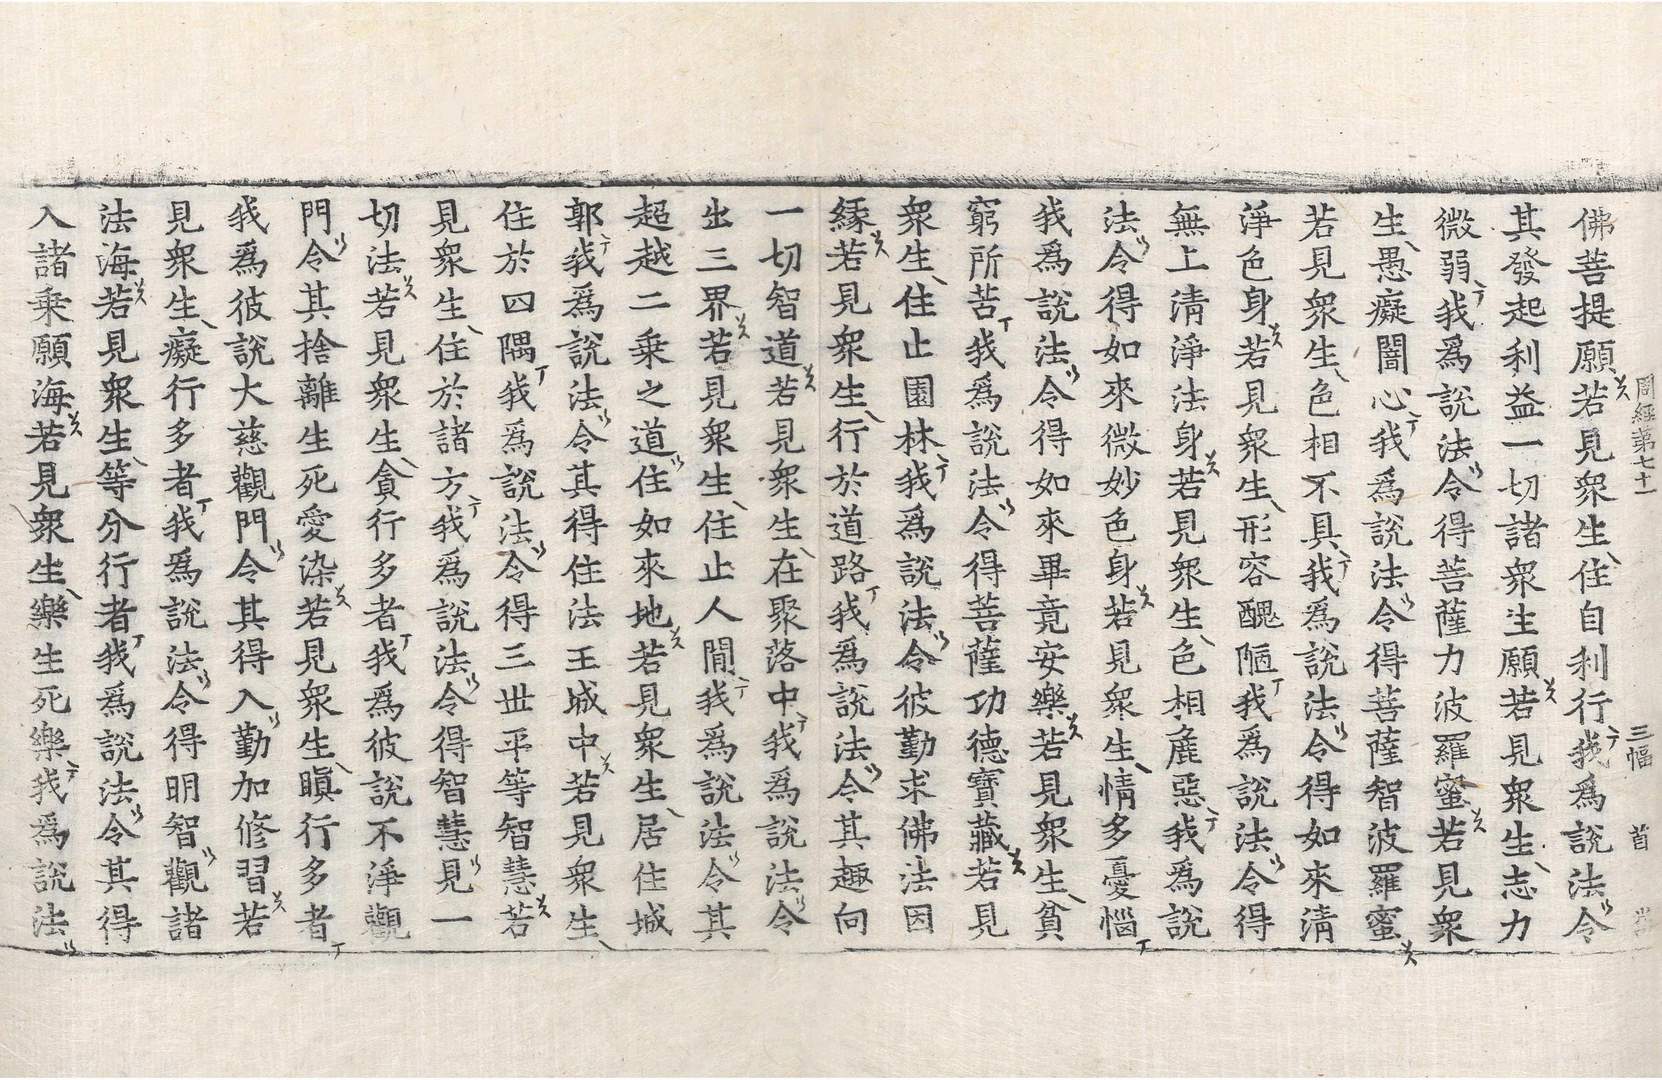 周經第七十一　三幅　首
佛菩提願若見衆生住自利行我爲說法令
其發起利益一切諸衆生願若見衆生志力
微弱我爲說法令得菩薩力波羅蜜若見衆
生愚癡闇心我爲說法令得菩薩智波羅蜜
若見衆生色相不具我爲說法令得如來清
淨色身若見衆生形容醜陋我爲說法令得
無上清淨法身若見衆生色相麁惡我爲說
法令得如來微妙色身若見衆生情多憂惱
我爲說法令得如來畢竟安樂若見衆生貧
窮所苦我爲說法令得菩薩功德寶藏若見
衆生住止園林我爲說法令彼勤求佛法因
緣若見衆生行於道路我爲說法令其趣向
一切智道若見衆生在聚落中我爲說法令
出三界若見衆生住止人間我爲說法令其
超越二乘之道住如來地若見衆生居住城
郭我爲說法令其得住法王城中若見衆生
住於四隅我爲說法令得三世平等智慧若
見衆生住於諸方我爲說法令得智慧見一
切法若見衆生貪行多者我爲彼說不淨觀
門令其捨離生死愛染若見衆生瞋行多者
我爲彼說大慈觀門令其得入勤加修習若
見衆生癡行多者我爲說法令得明智觀諸
法海若見衆生等分行者我爲說法令其得
入諸乘願海若見衆生樂生死樂我爲說法